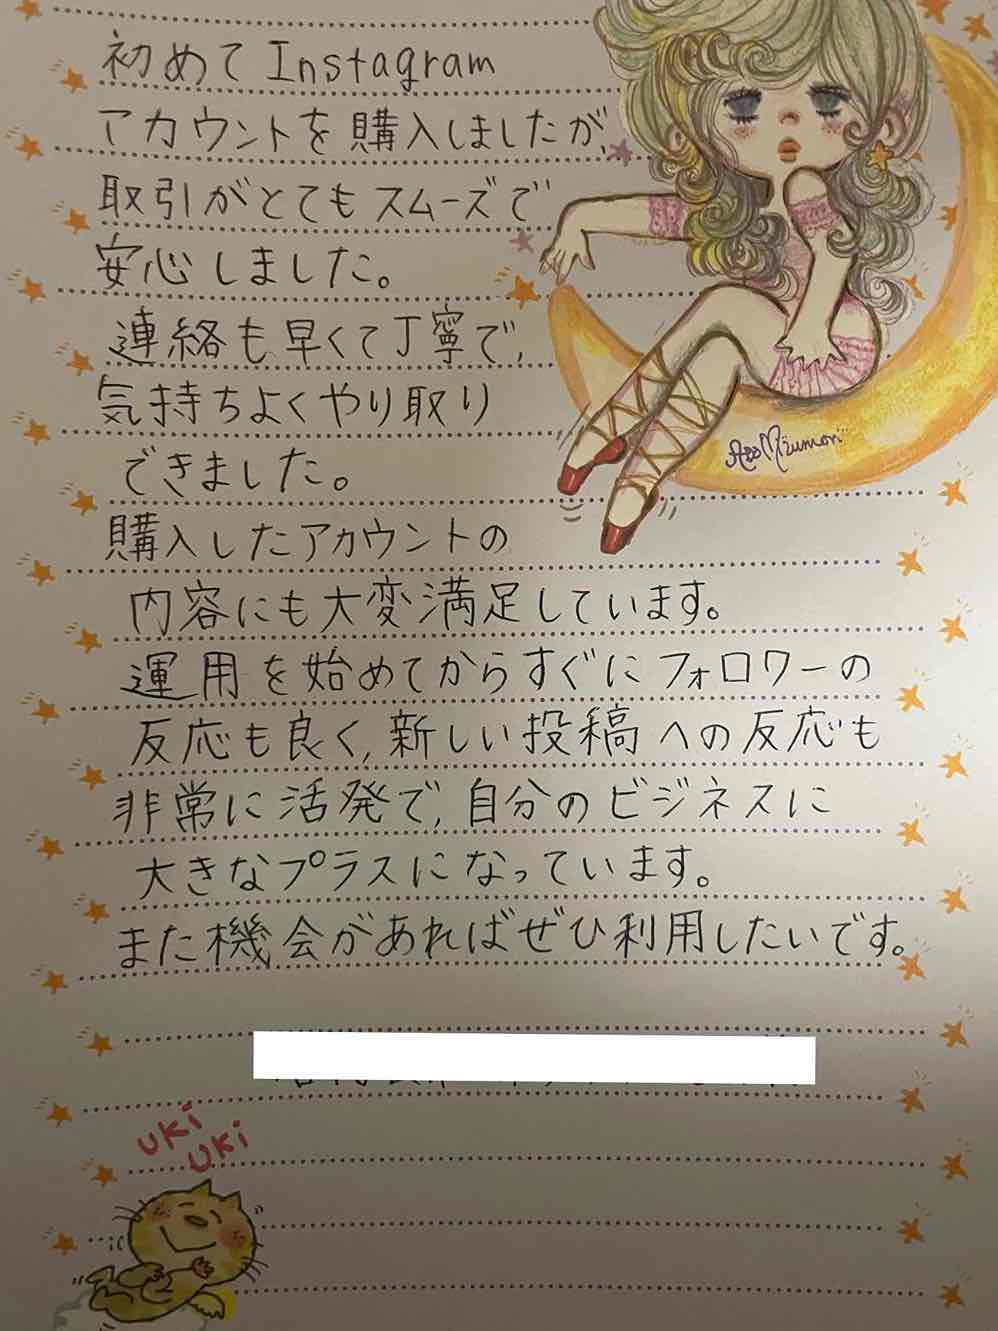 初めてInstagram
アカウントを購入しましたが、
取引がとてもスムーズで
安心しました。
連絡も早くて丁寧で、
気持ちよくやり取り
できました。
購入したアカウントの
内容にも大変満足しています。
運用を始めてからすぐにフォロワーの
反応も良く、新しい投稿への反応も
非常に活発で、自分のビジネスに
大きなプラスになっています。
また機会があればぜひ利用したいです。
uki
uki